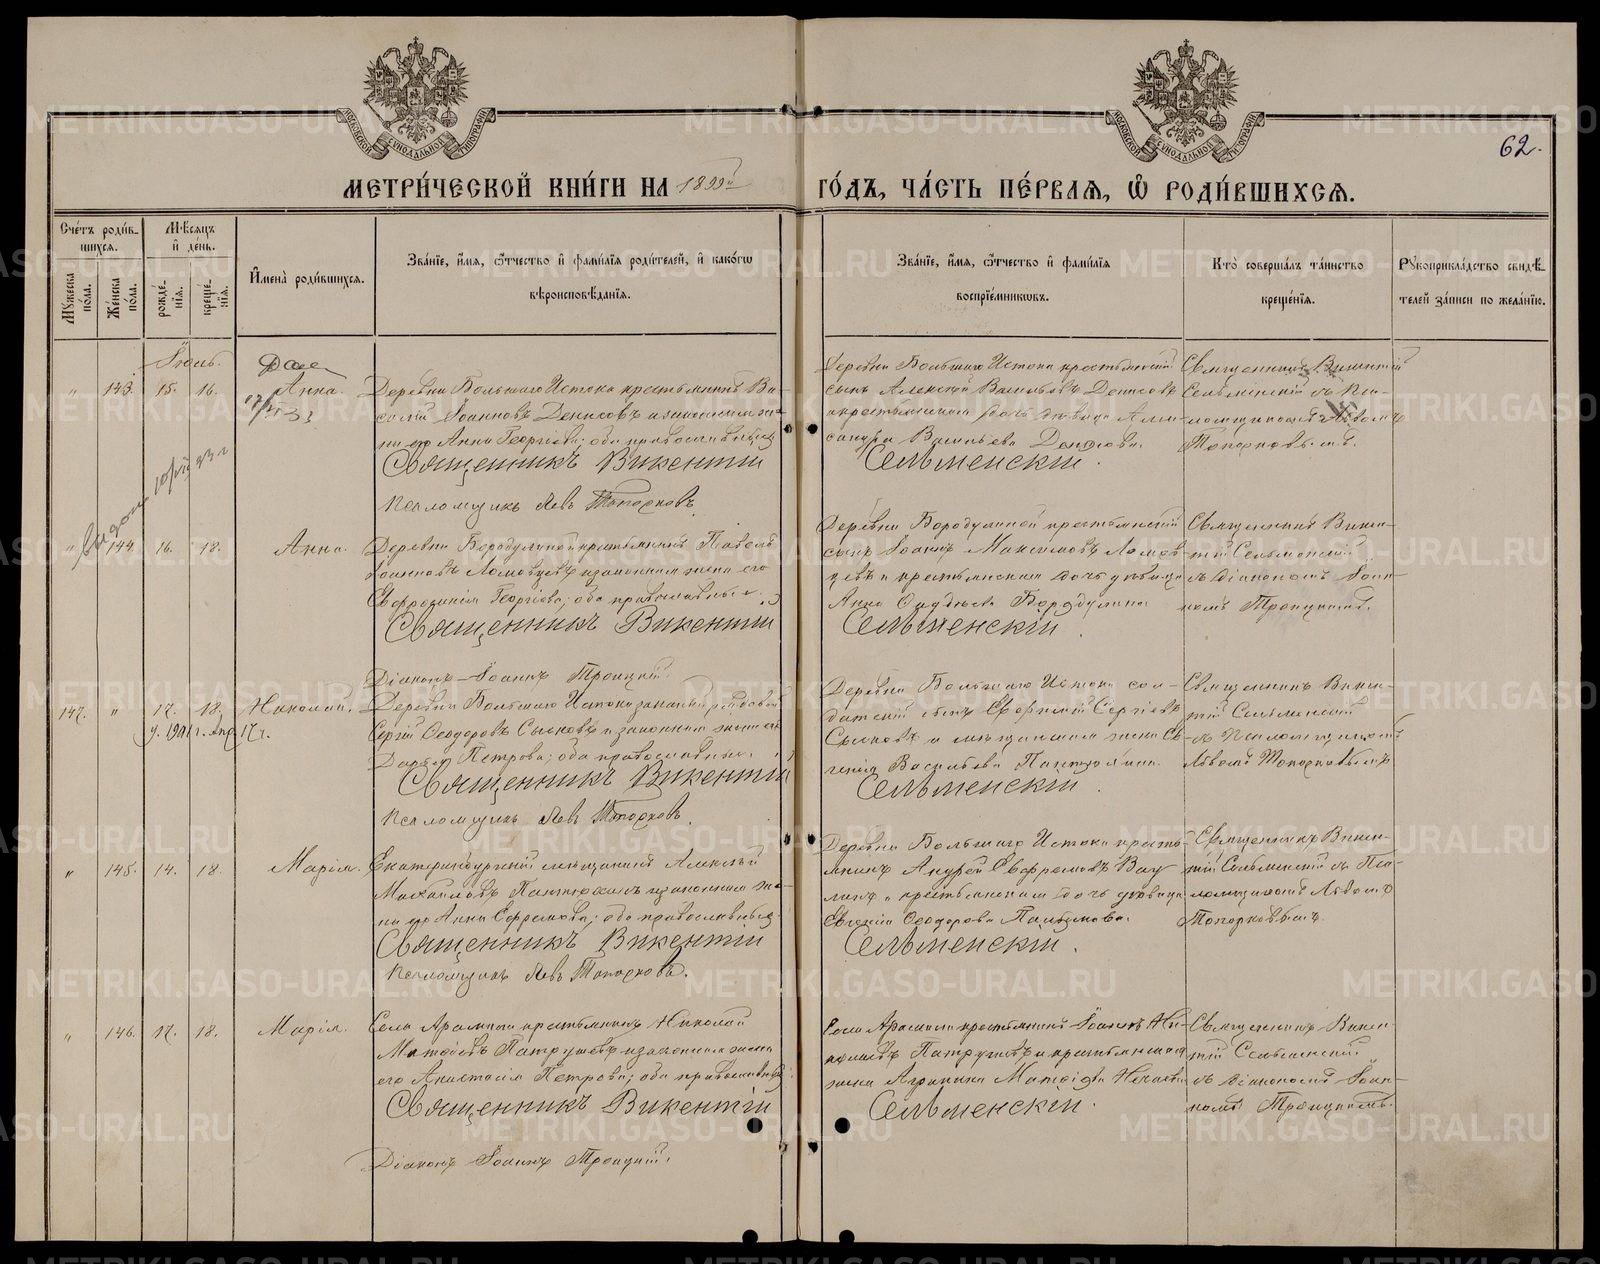 МОСКОВСКОЙ СУНОДАЛЬНОЙ ТИПОГРАФИИ
МОСКОВСКОЙ СУНОДАЛЬНОЙ ТИПОГРАФИИ
62.
МЕТРИ́ЧЕСКОЙ КНИ́ГИ НА 1899й
ГО́ДЪ, ЧА́СТЬ ПЕ́РВАЯ, Ѡ҆ РОДИ́ВШИХСЯ.
Сче́тъ роди́в-
шихся.
Мѣ́сяцъ
и҆ де́нь.
И҆мена̀ роди́вшихся.
Зва́нїе, и҆́мя, ѻ҆́тчество и҆ фами́лїя роди́телей, и҆ како́гѡ
вѣроисповѣ́данїя.
Зва́нїе, и҆́мя, ѻ҆́тчество и҆ фами́лїя
воспрїе́мникѡвъ.
Кто̀ соверша́лъ та́инство
креще́нїя.
Рꙋкоприкла́дство свидѣ́-
телей за́писи по жела́нїю.
Мꙋ́жеска по́ла.
Же́нска по́ла.
рожде́-нїя.
креще́-нїя.
Іюль.
" 143. 15. 16. Анна.
Деревни Большаго Истока крестьянинъ Ва-
силій Іоанновъ Денисовъ и законная же-
на его Анна Георгіева; оба православные
Священникъ Викентій
Псаломщикъ Левъ Топорковъ.
Деревни Большаго Истока крестьянскій
сынъ Алексій Васильевъ Денисовъ
и крестьянская дочь девица Алек-
сандра Васильева Денисова.
Сельменскій.
Священникъ Викентій
Сельменскій съ Пса-
ломщикомъ Львомъ
Топорковымъ.
" 144. 16. 18. Анна.
Деревни Бородулиной крестьянинъ Павелъ
Іоанновъ Ломовцевъ и законная жена его
Евфросинія Георгіева; оба православные.
Священникъ Викентій
Діаконъ Іоаннъ Троицкій.
Деревни Бородулиной крестьянскій
сынъ Іоаннъ Максимовъ Ломов-
цевъ и крестьянская дочь девица
Анна Бородулина
Сельменскій.
Священникъ Викен-
тій Сельменскій
съ Діакономъ Іоан-
номъ Троицкимъ.
147. " 17. 18. Николай.
у. 1901 г. апр. 17 г.
Деревни Большаго Истока запасный рядовой
Сергій Ѳеодоровъ Сысковъ и законная жена его
Дарья Петрова; оба православные.
Священникъ Викентій
Псаломщикъ Левъ Топорковъ.
Деревни Большаго Истока сол-
датскій сынъ Сергіевъ
Сысковъ и мещанская жена Ев-
генія Васильева Пантюхина.
Сельменскій.
Священникъ Викен-
тій Сельменскій
съ Псаломщикомъ
Львомъ Топорковымъ
" 145. 14. 18. Марія.
Екатеринбургскій мещанинъ Алексей
Михайловъ Пантюхинъ и законная же-
на его Анна Ефремова; оба православные
Священникъ Викентій
Псаломщикъ Левъ Топорковъ.
Деревни Большаго Истока кресть-
янинъ Андрей Евфремовъ
и крестьянская дочь девица
Евгенія Ѳеодорова Пальцмова.
Сельменскій.
Священникъ Викен-
тій Сельменскій съ Пса-
ломщикомъ Львомъ
Топорковымъ.
" 146. 17. 18. Марія.
Села Арамили крестьянинъ Николай
Матѳіевъ Патрушевъ и законная жена
его Анастасія Петрова; оба православные
Священникъ Викентій
Діаконъ Іоаннъ Троицкій.
Села Арамили крестьянинъ Іоаннъ Ни-
колаевъ Патрушевъ и крестьянская
жена Матѳіева
Сельменскій.
Священникъ Викен-
тій Сельменскій
съ Діакономъ Іоан-
номъ Троицкимъ.
METRIKI.GASO-URAL.RU